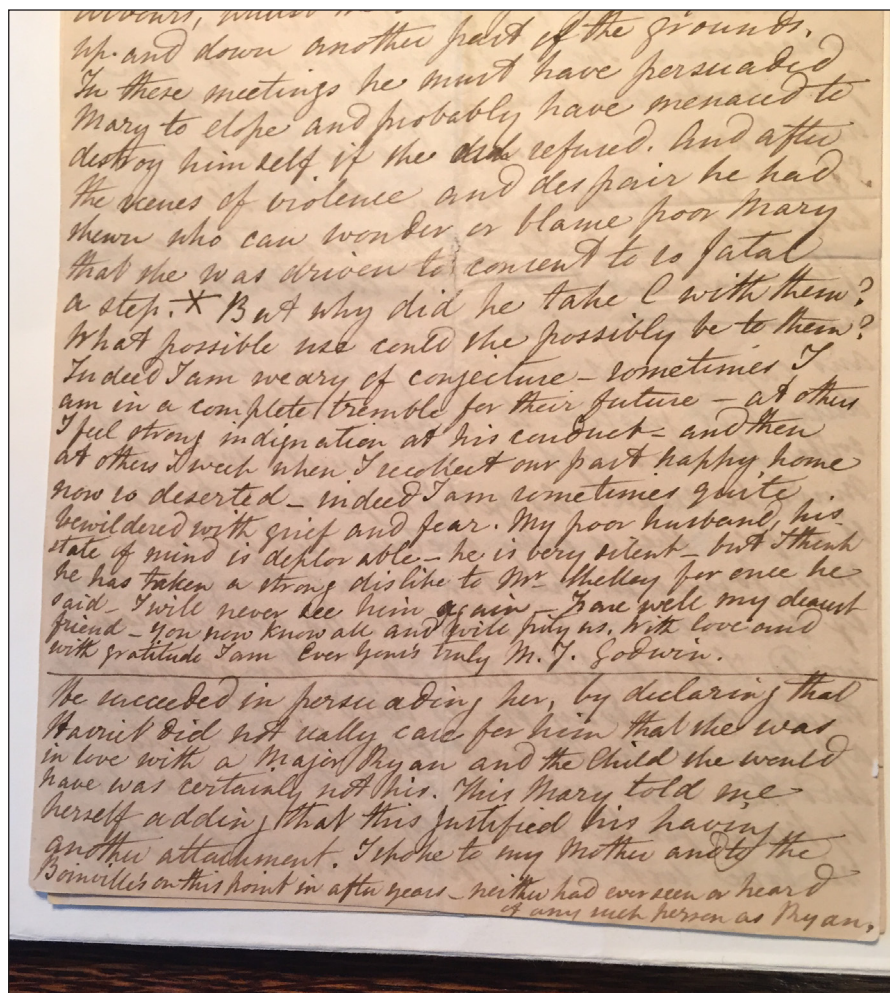 up and down another part of the grounds.
In these meetings he must have persuaded
Mary to elope and probably have menaced to
destroy himself if she refused. And after
the scenes of violence and despair he had
shewn who can wonder or blame poor Mary
that she was driven to consent to so fatal
a step. X But why did he take C with them?
What possible use could she possibly be to them?
Indeed I am weary of conjecture – sometimes I
am in a complete tremble for their future – at others
I feel strong indignation at his conduct – and then
at others I weep when I recollect our past happy home
now so deserted – indeed I am sometimes quite
bewildered with grief and fear. My poor husband, his
state of mind is deplorable – he is very silent – but I think
he has taken a strong dislike to Mr Shelley for once he
said – I will never see him again – Fare well my dearest
friend – you now know all and will pity us. With love and
with gratitude I am Ever Yours truly M. J. Godwin.
He succeeded in persuading her, by declaring that
Harriet did not really care for him that she was
in love with a Major Ryan and the Child she would
have was certainly not his. This Mary told me
herself adding that this justified his having
another attachment. I spoke to my Mother and to the
Boinville's on this point in after years – neither had ever seen or heard
of any such person as Ryan.